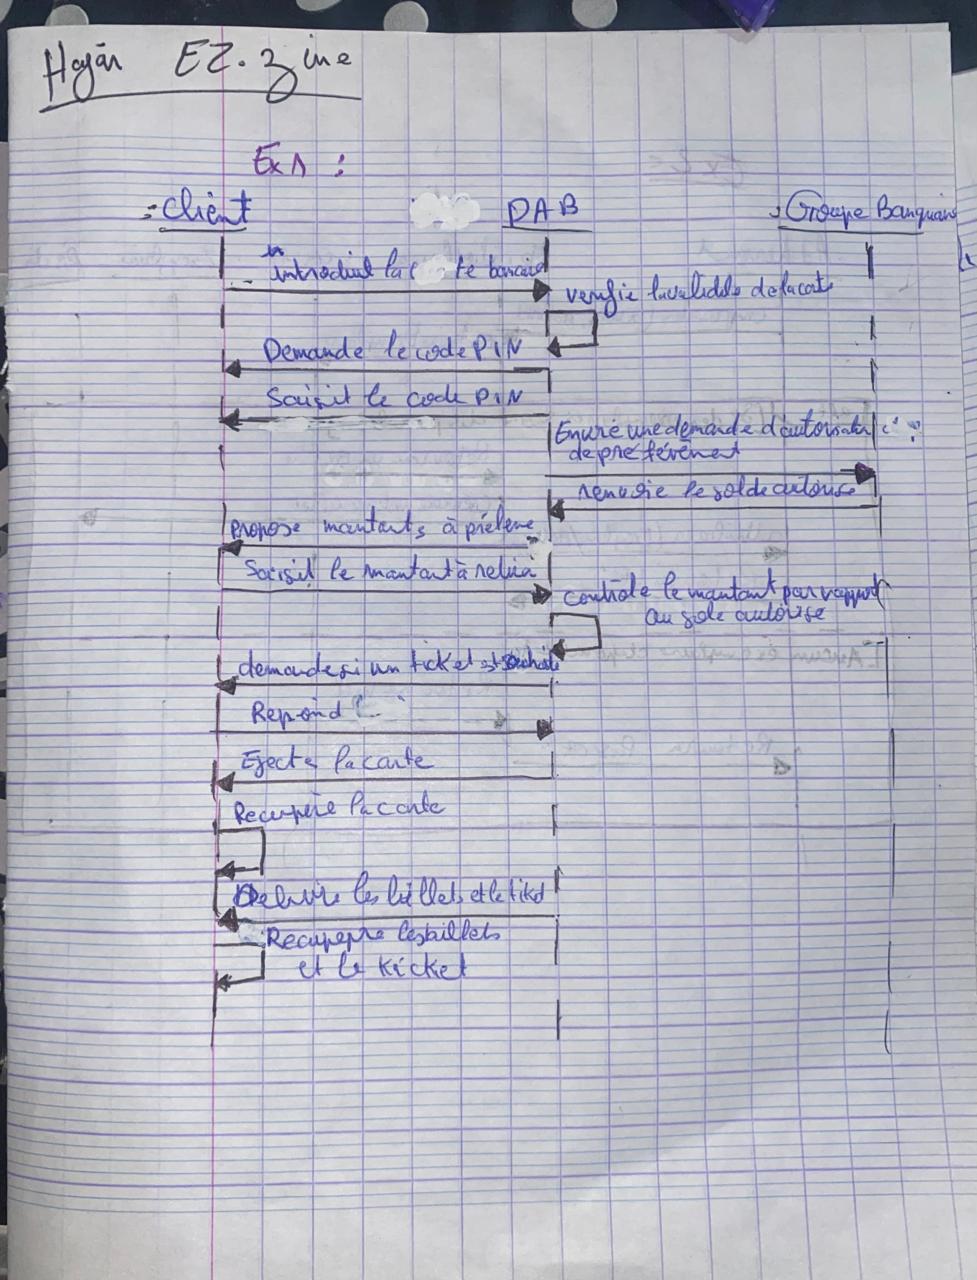 Hajar EZ.zine
Ex 1 :
:Client DAB :Groupe Banquaire
introduit la carte bancaire
verifie la validité de la carte
Demande le code PIN
Saisit le code PIN
Envoie une demande d'autorisation
de prélèvement
renvoie le solde autorise
propose mantants à préleve
Saisit le mantant à retirer
contrôle le mantant par rapport
au solde autorise
demande si un ticket est souhaité
Repond
Ejecte la carte
Recupère la carte
Delivre les billets et le ticket
Recupepre les billets
et le Kicket